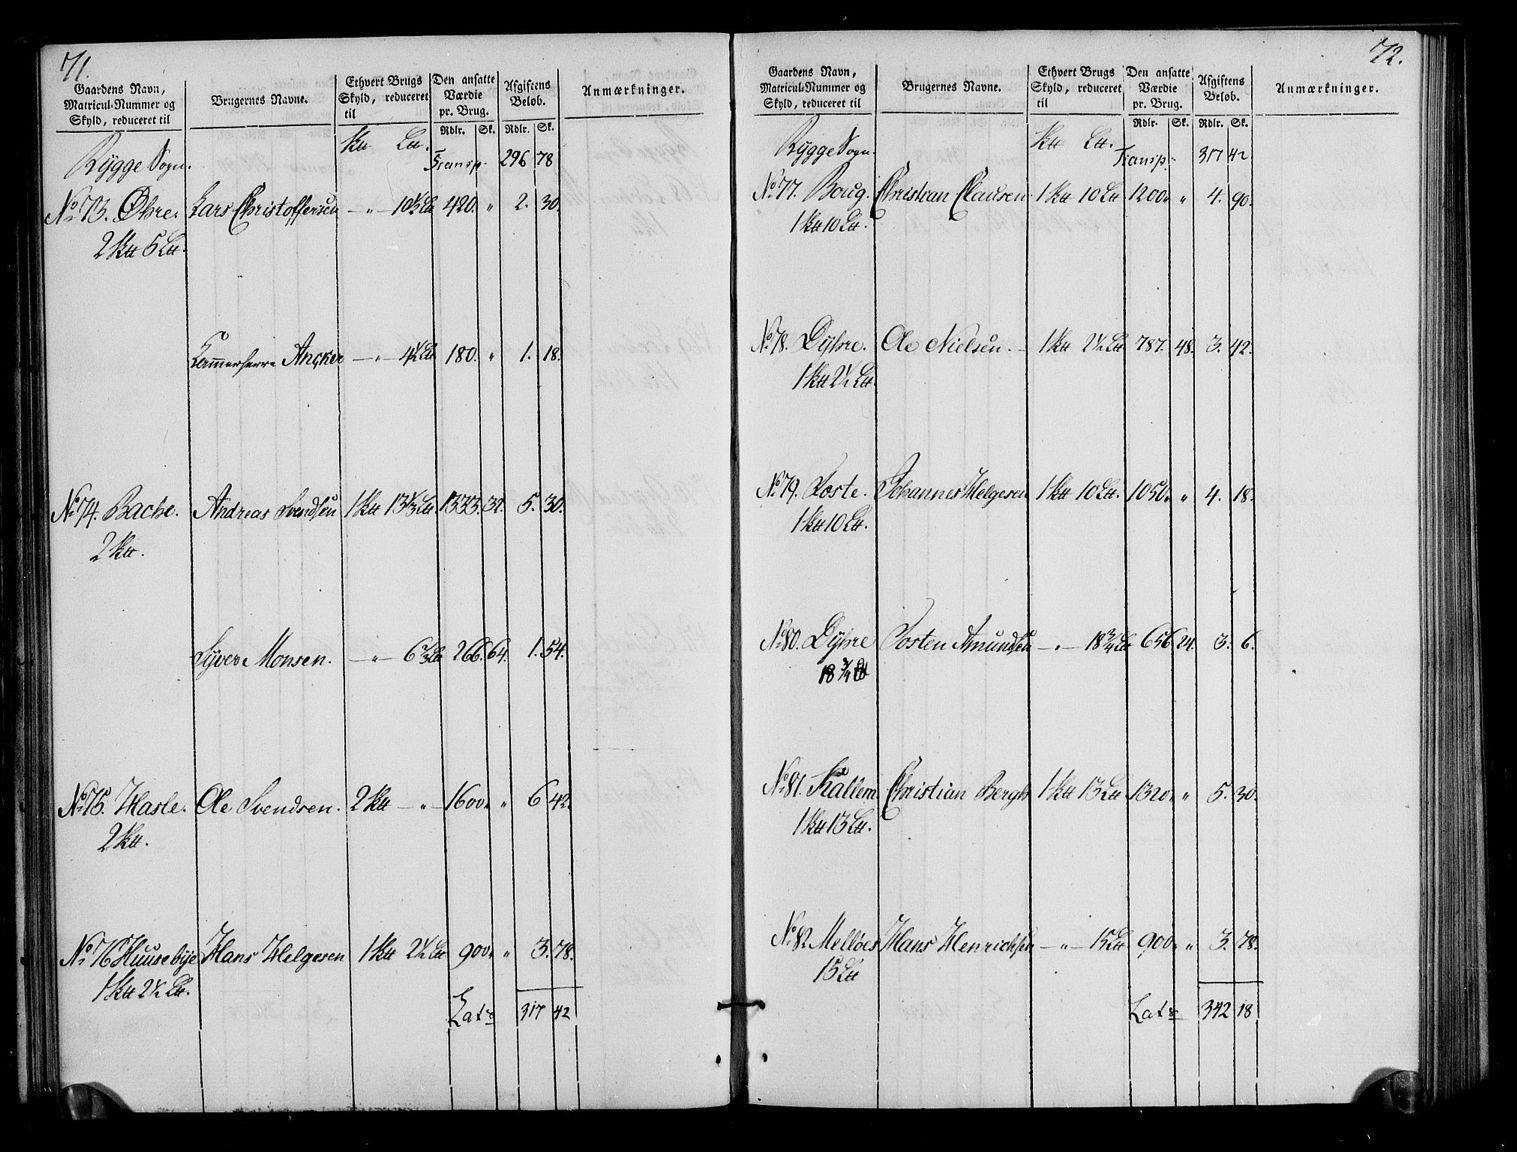 71.
Gaardens Navn, Matricul-Nummer og Skyld, reduceret til | Brugernes Navne. | Ethvert Brugs Skyld, reduceret til | Den ansatte Værdie pr. Brug. Rdlr. Sk. | Afgiftens Beløb. Rdlr. Sk. | Anmærkninger.
Rygge Sogn. | ℔ L℔. | Transp. 296 78
No 73. Øhre. Lars Christoffersen — „ — 10½ L℔ 420. „ 2. 30.
2 ℔ 5 L℔.
Kammerherre Ancker — „ — 4½ L℔ 180. „ 1. 18.
No 74. Bache. Andreas Svendsen 1 ℔ 13⅓ L℔ 1333. 32. 5. 30.
2 ℔.
Syver Monsen. — „ — 6⅔ L℔ 266. 64. 1. 54.
No 75. Hasle. Ole Svendsen. 2 ℔ — „ 1600. „ 6 42.
2 ℔.
No 76 Huusebye Hans Helgesen 1 ℔ 2½ L℔ 900. „ 3. 78.
1 ℔ 2½ L℔.
Lats 317 42
72.
Gaardens Navn, Matricul-Nummer og Skyld, reduceret til | Brugernes Navne. | Ethvert Brugs Skyld, reduceret til | Den ansatte Værdie pr. Brug. Rdlr. Sk. | Afgiftens Beløb. Rdlr. Sk. | Anmærkninger.
Rygge Sogn. | ℔ L℔. | Transp. 317 42
No 77. Borig Christian Clausen 1 ℔ 10 L℔ 1200. „ 4. 90.
1 ℔ 10 L℔.
No 78. Dyhre. Ole Nielsen. 1 ℔ 2½ L℔ 787. 48. 3. 42.
1 ℔ 2½ L℔.
No 79. Johannes Helgesen 1 ℔ 10 L℔. 1050. „ 4. 18.
1 ℔ 10 L℔.
No 80. Dyhre Tosten Amundsen — „ — 18¾ L℔ 656 24. 3. 6.
18¾ L℔
No 81. Kallem Christian Bergh 1 ℔ 13 L℔ 1320. „ 5. 30.
1 ℔ 13 L℔.
No 82. Melløes Hans Henrichsen — „ — 15 L℔ 900. „ 3. 78.
15 L℔
Lats 342 18